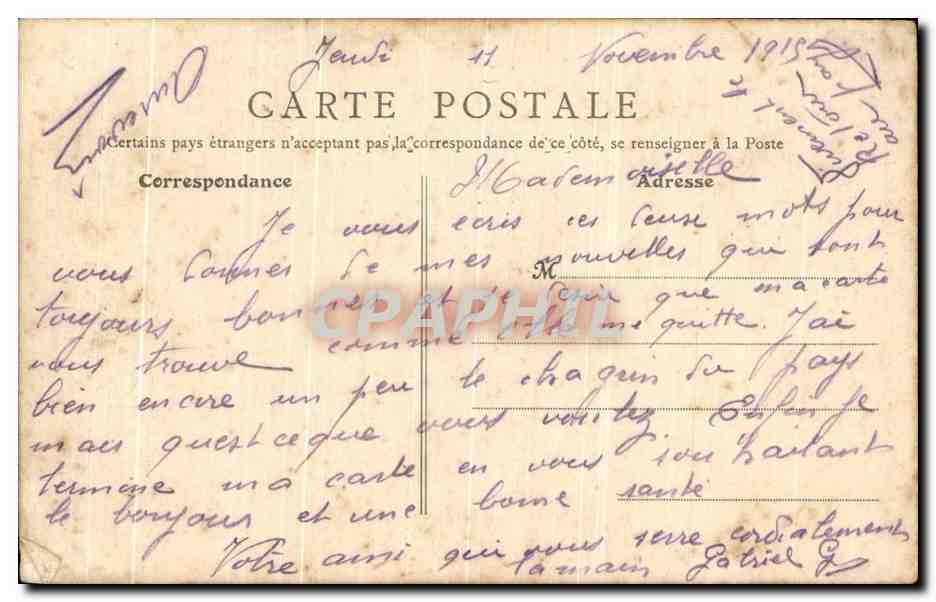 Jeudi 11 Novembre 1915
CARTE POSTALE
Certains pays étrangers n'acceptant pas la correspondance de ce côté, se renseigner à la Poste
Correspondance
Adresse
Mademoiselle
Je vous ecris ces deux mots pour
vous donner de mes nouvelles qui sont
M
toujours bonnes et je desir que ma carte
vous trouve comme elle me quitte. J'ai
bien encore un peu le chagrin du pays
mais quest ce que vous voulez Enfin Je
termine ma carte en vous souhaitant
le bonjour et une bonne santé
Votre ami qui vous serre cordialement
la main Gabriel G
retour
au
CPAPHIL